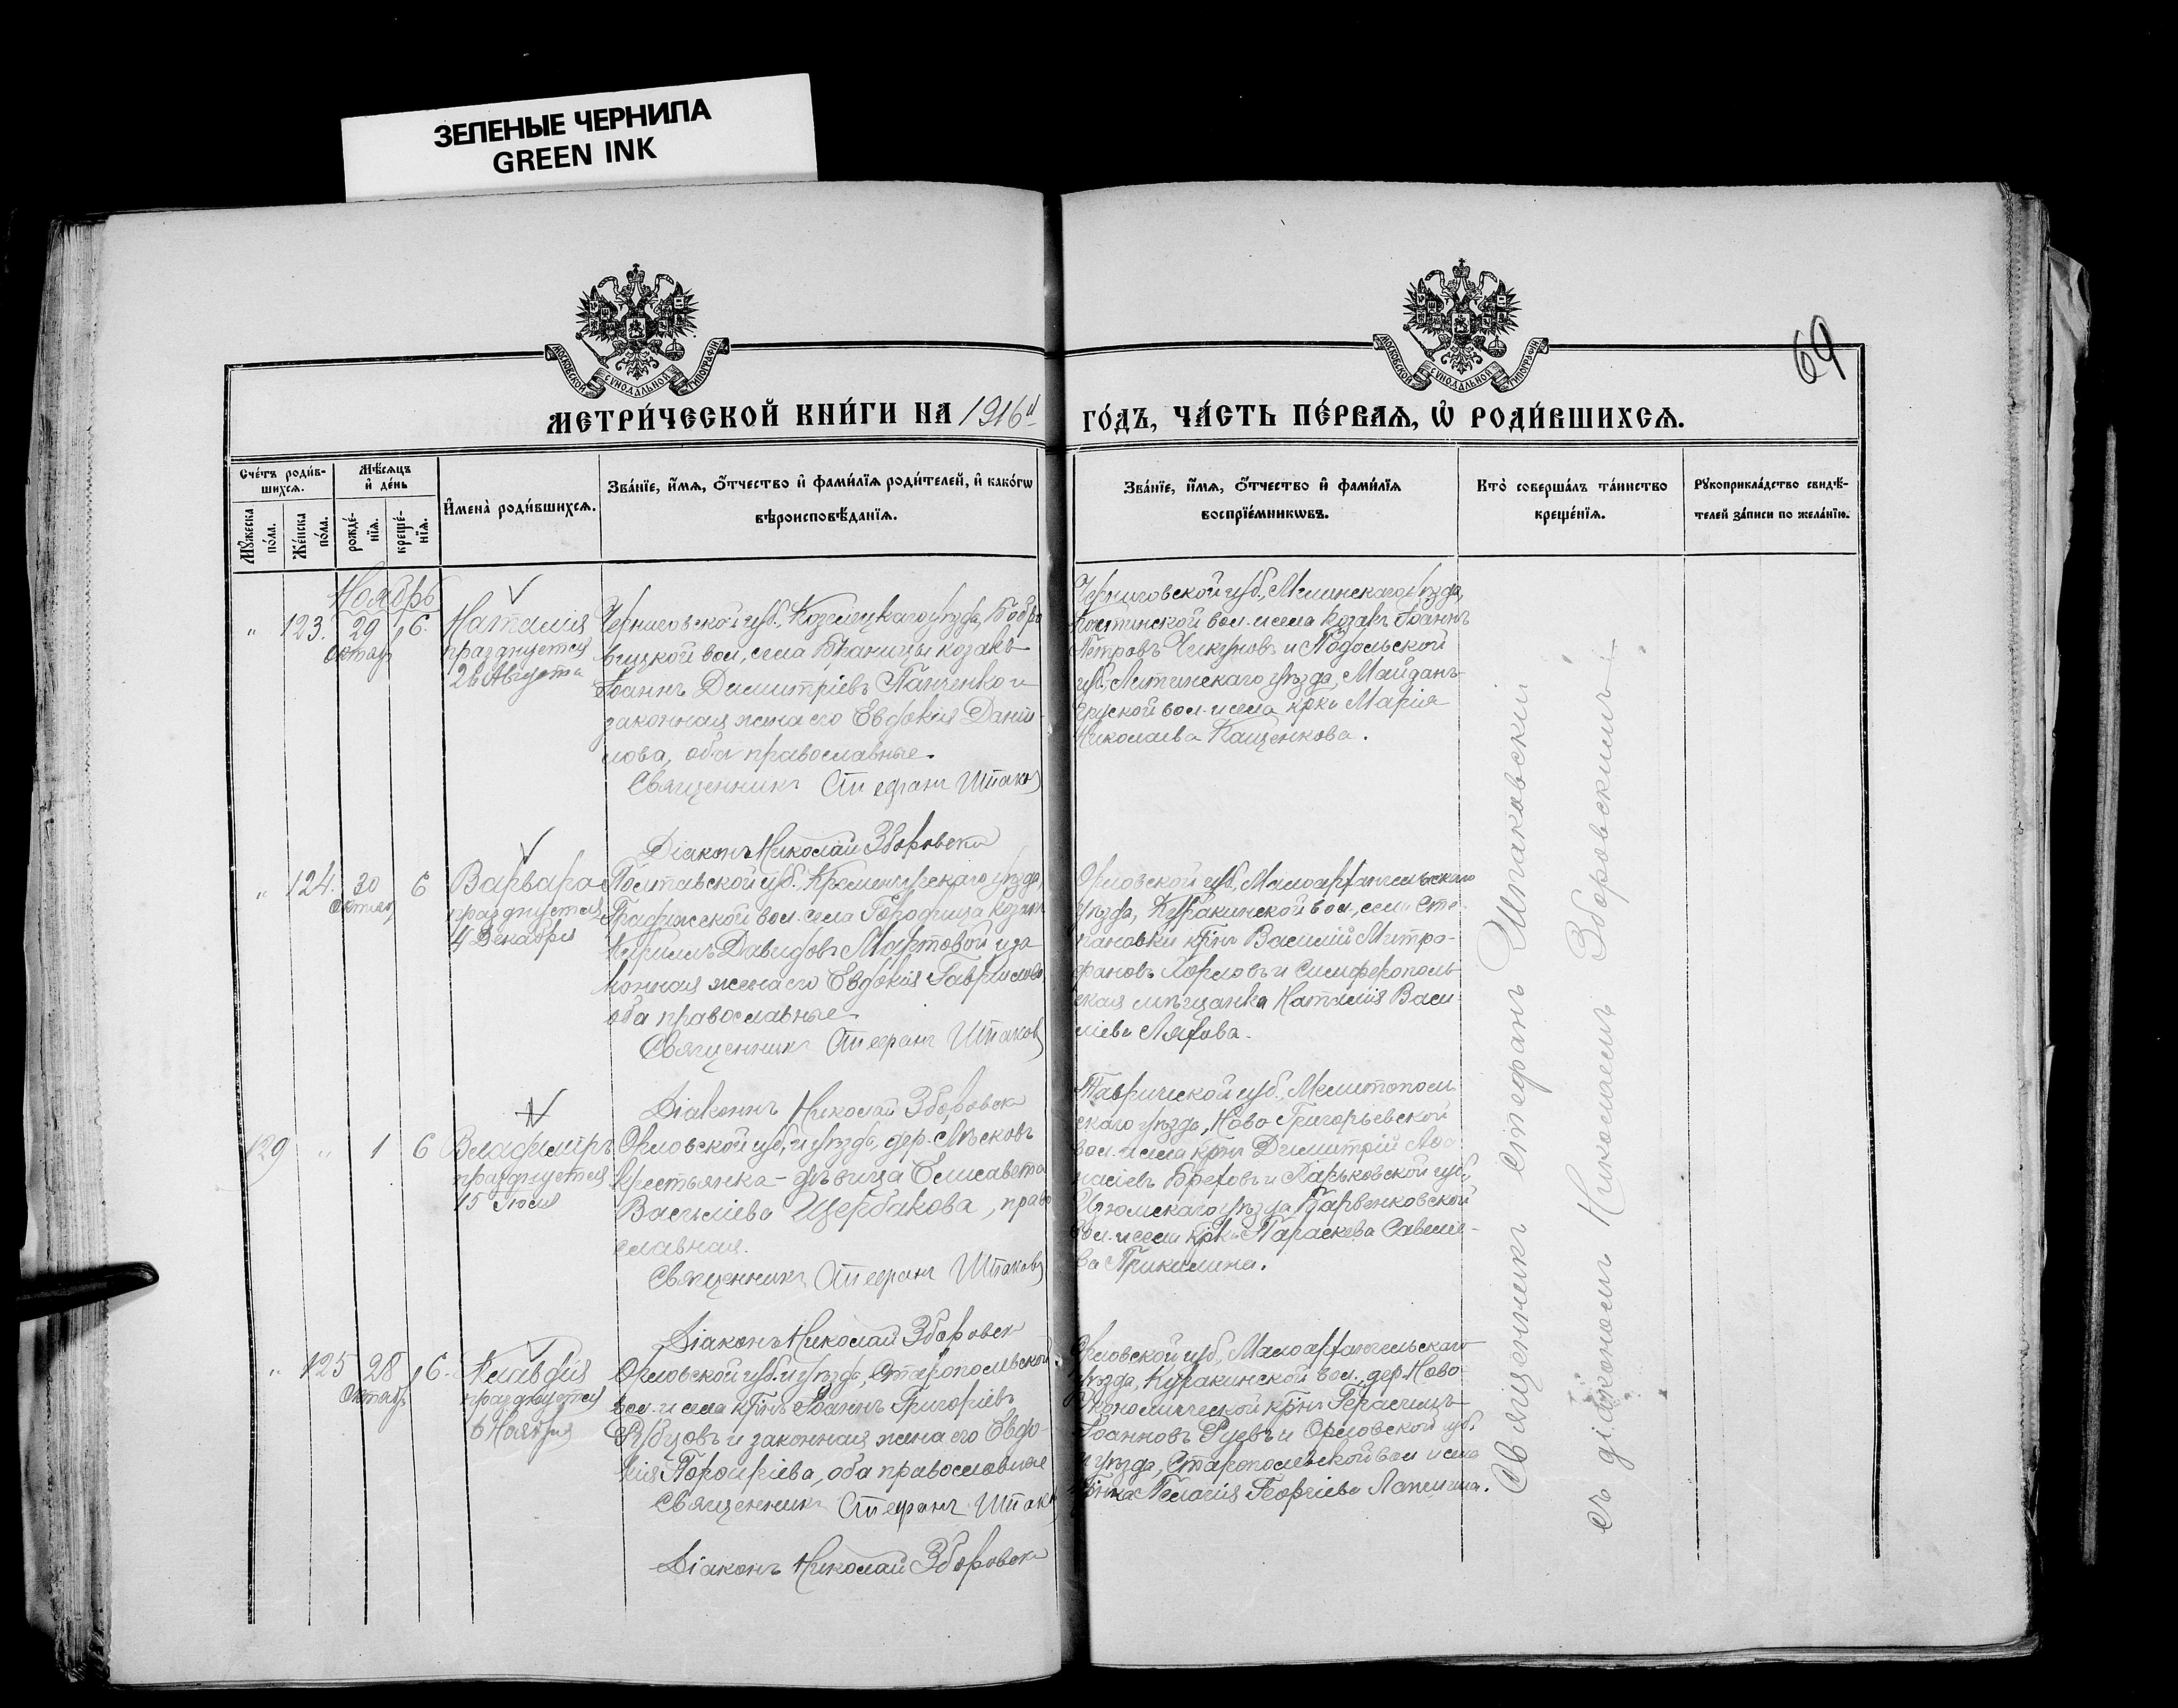 ЗЕЛЕНЫЕ ЧЕРНИЛА
GREEN INK
69
МОСКОВСКОЙ СѴНОДАЛЬНОЙ ТИПОГРАФІИ
МОСКОВСКОЙ СѴНОДАЛЬНОЙ ТИПОГРАФІИ
МЕТРИ́ЧЕСКОЙ КНИ́ГИ НА 1916й ГО́ДЪ, ЧА́СТЬ ПЕ́РВАѦ, Ѽ РОДИ́ВШИХСѦ.
Сче́тъ роди́в-
шихсѧ.
Мꙋ́жеска по́ла.
Же́нска по́ла.
Мѣ́сѧцъ и҆ де́нь
рожде́-
нїѧ.
креще́-
нїѧ.
И҆мена̀ роди́вшихсѧ.
Зва́нїе, и҆́мѧ, ѻ҆́тчество и҆ фами́лїѧ роди́телей, и҆ како́гѡ
вѣроисповѣ́данїѧ.
Зва́нїе, и҆́мѧ, ѻ҆́тчество и҆ фами́лїѧ
воспрїе́мникѡвъ.
Кто̀ соверша́лъ та́инство
креще́нїѧ.
Рꙋкоприкла́дство свидѣ́-
телей за́писи по жела́нїю.
Ноябрь
" 123. 29 6.
Октяб
Наталія
празднуется
26 Августа
Черниговской губ., Козелецкаго уѣзда, Бобро
вицкой вол., села Браницы козакъ
Іоаннъ Димитріевъ Панченко и
законная жена его Евдокія Дани-
лова, оба православные.
Священникъ Стефанъ Шпаков
Діаконъ Николай Зборовски
Черниговской губ., уѣзда,
вол. и села козакъ Іоаннъ
Петровъ Чикуновъ и Подольской
губ. Литинскаго уѣзда, Майданъ-
вол. и села крка Марія
Николаева Кащенкова.
" 124. 30 6
Октяб
Варвара
празднуется
4 Декабря
Полтавской губ. Кременчугскаго уѣзда,
вол. села Городища козакъ
Кириллъ Давидовъ Мартовой и за
конная жена его Евдокія Гаврилова
оба православные.
Священникъ Стефанъ Шпаков
Діаконъ Николай Зборовск
Орловской губ., Малоархангельскаго
уѣзда, Куракинской вол., села Сте-
пановки крнъ Василій Митро-
фановъ Хорловъ и Симферополь
ская мѣщанка Наталія Васи
ліева Ляхова.
129 " 1 6
Владиміръ
празднуется
15 Іюля
Орловской губ. и уѣзда, дер. Лѣсковъ
крестьянка-дѣвица Елисавета
Васильева Щербакова, право
славная.
Священникъ Стефанъ Шпаков
Діаконъ Николай Зборовск
Таврической губ., Мелитополь
скаго уѣзда, Ново Григорьевской
вол. и села крнъ Димитрій Аѳа
насіевъ Бреховъ и Харьковской губ.,
Изюмскаго уѣзда Барвенковской
вол. и села крка Параскева Савелье-
ва
" 125 28 6.
Октяб
Клавдія
празднуется
6 Ноября
Орловской губ. и уѣзда, Старопольской
вол. и села крнъ Іоаннъ Григоріевъ
Рубцовъ и законная жена его Евдо-
кія Порфиріева, оба православные
Священникъ Стефанъ Шпак
Діаконъ Николай Зборовск
Орловской губ., Малоархангельскаго
уѣзда, Куракинской вол., дер. Ново
Экономической крнъ Герасимъ
Іоанновъ и Орловской губ.
и уѣзда, Старопольской вол. и села
Пелагія Георгіева Лапшина.
Священникъ Стефанъ Шпаковскій
съ діакономъ Николаемъ Зборовскимъ